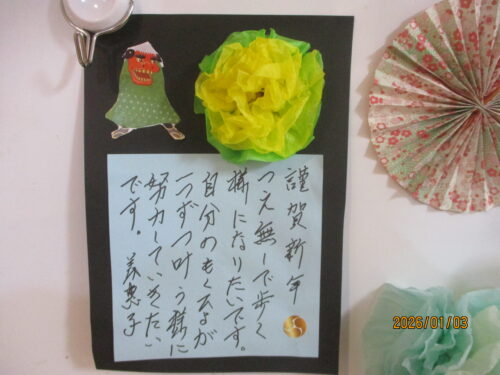 謹賀新年
つえ無しで歩く
様になりたいです。
自分のもくひょうが
一つずつ叶う様に
努力していきたい
です。 美恵子
2026/01/03